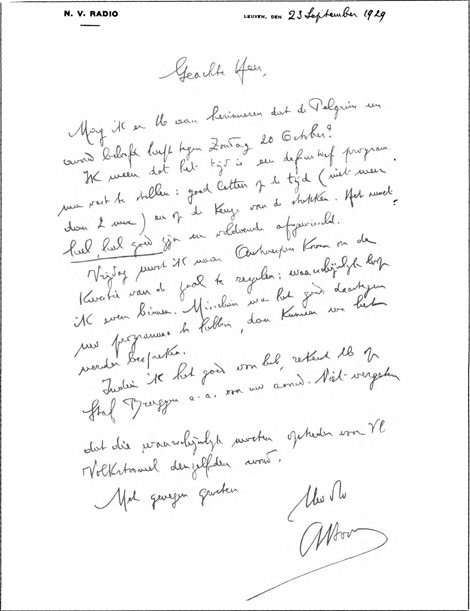 N. V. RADIO
LEUVEN, DEN 23 September 1929
Geachte Heer,
Mag ik er U aan herinneren dat de Pelgrim een
avond belooft heeft tegen Zondag 20 October?
Ik meen dat het tijd is een definitief program-
ma vast te stellen: goed letten op de tijd (niet meer
dan 2 uur) en op de keuze van de stukken. Het moet
heel, heel goed zijn en voldoende afgewisseld.
Vrijdag moet ik naar Antwerpen komen om de
kwestie van de zaal te regelen: waarschijnlijk loop
ik even binnen. Misschien was het goed daartegen
uw programma te hebben, dan kunnen we het
verder bespreken.
Indien ik het goed voor heb, rekent U op
Staf Bruggen e.a. voor uw avond. Niet vergeten
dat die waarschijnlijk moeten optreden voor Vl
Volkstooneel denzelfden avond.
Met genegen groeten
Uw dw